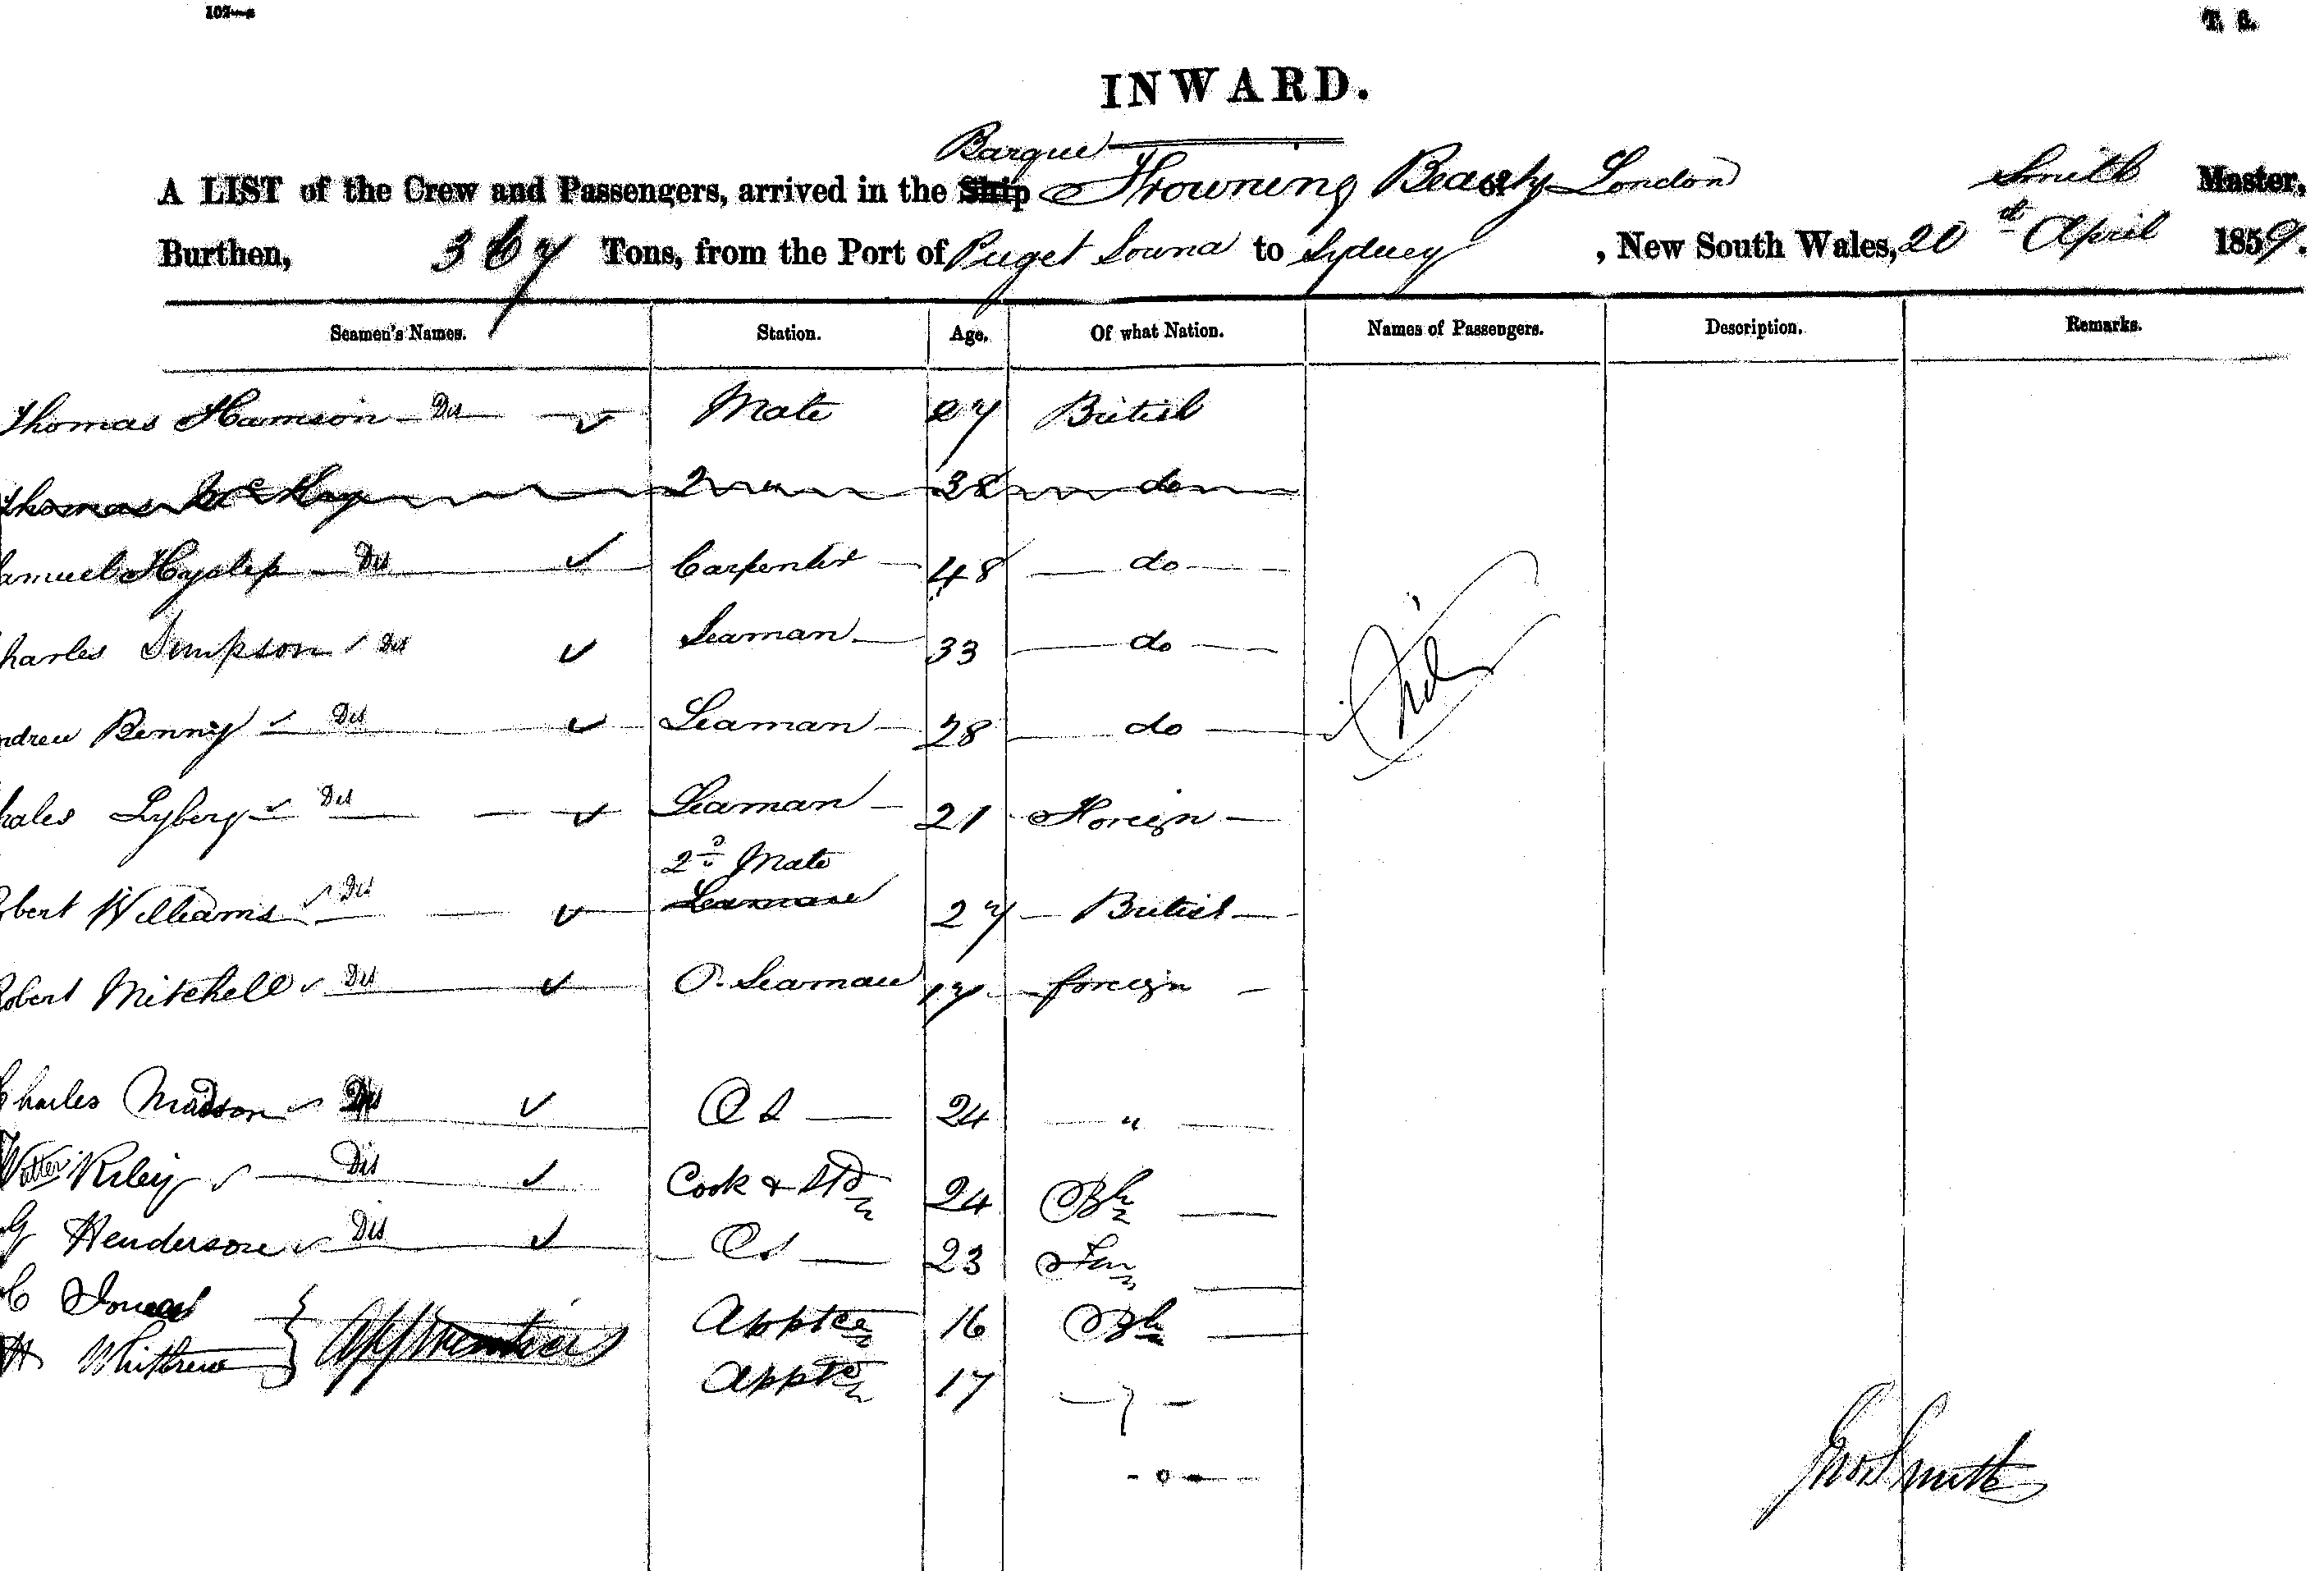 T. S.
INWARD.
Barque
A LIST of the Crew and Passengers, arrived in the Ship Frowning Beauty of London Smith Master,
Burthen, 367 Tons, from the Port of Puget Sound to Sydney, New South Wales, 20th April 1859.
Seamen's Names. Station. Age. Of what Nation. Names of Passengers. Description. Remarks.
Thomas Hamson Dis Mate 27 British
Thomas McKay 2 " 38 do
amuel Hyslep Dis Carpenter 48 do
harles Simpson Dis Seaman 33 do
ndrew Benny Dis Seaman 28 do
Nil
hales Lyberg Dis Seaman 21 Foreign
2d Mate
obert Williams Dis Seaman 27 British
Robert Mitchell Dis O. Seaman 17 foreign
Charles Madson Dis OS 24 "
Riley Dis Cook & Std 24 Bh
G Henderson Dis OS 23 Forn
C Jones Apptce 16 Bh
H Apprentices Apptce 17 "
Jno Smith